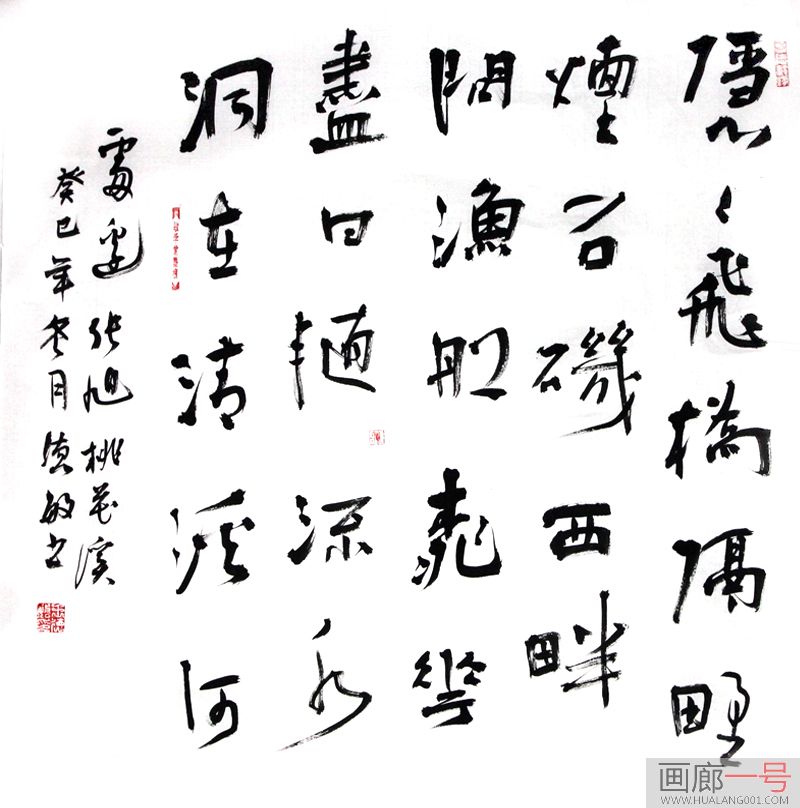 隱〻飛橋隔野
煙石磯西畔
問漁船桃花
盡日隨流水
洞在清溪何
處邊 张旭桃花溪
癸巳年冬月德敏书
画廊一号
WWW.HUALANG001.COM